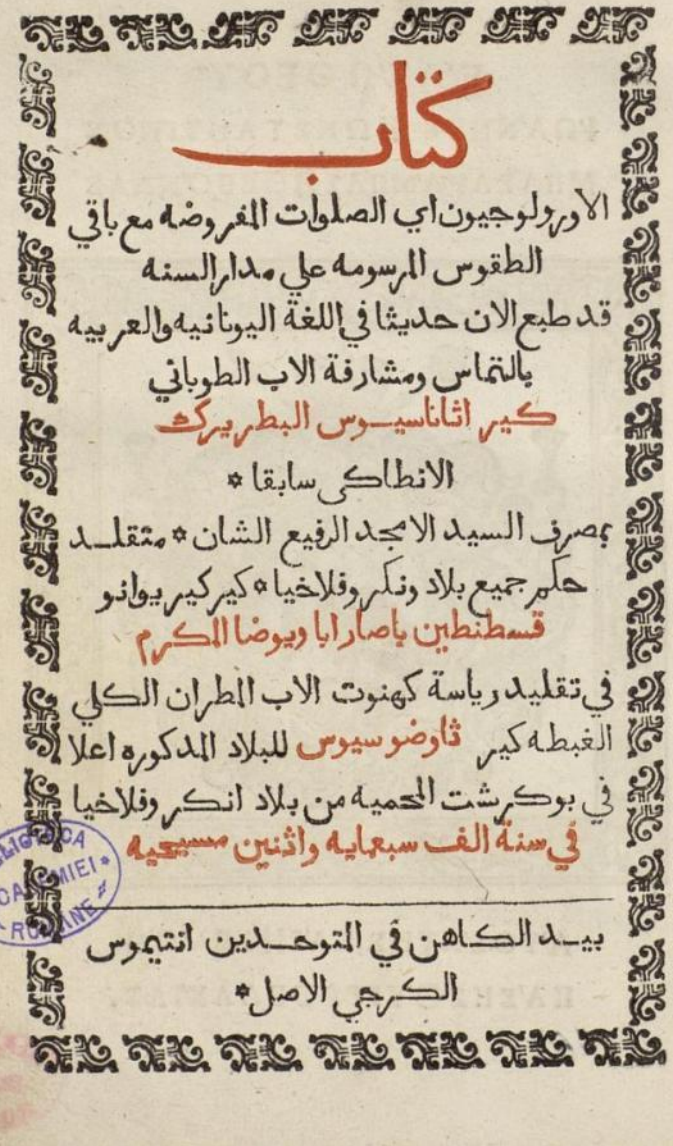 كتاب
الاورولوجيون اي الصلوات المفروضه مع باقي
الطقوس المرسومه علي مدار السنه
قد طبع الان حديثا في اللغة اليونانيه والعربيه
بالتماس ومشارفة الاب الطوباني
كير اثاناسيوس البطريرك
الانطاكي سابقا *
بمصرف السيد الامجد الرفيع الشان * متقلد
حكم جميع بلاد ونكروفلاخيا * كير كير يوانو
قسطنطين باصارابا ويوضا المكرم
في تقليد رياسة كهنوت الاب المطران الكلي
الغبطه كير ثاوضوسيوس للبلاد المذكوره اعلا
في بوكرشت المحميه من بلاد انكروفلاخيا
في سنة الف سبعمايه واثنين مسيحيه
بيد الكاهن في المتوحدين انتيموس
الكرجي الاصل *
ROMINE